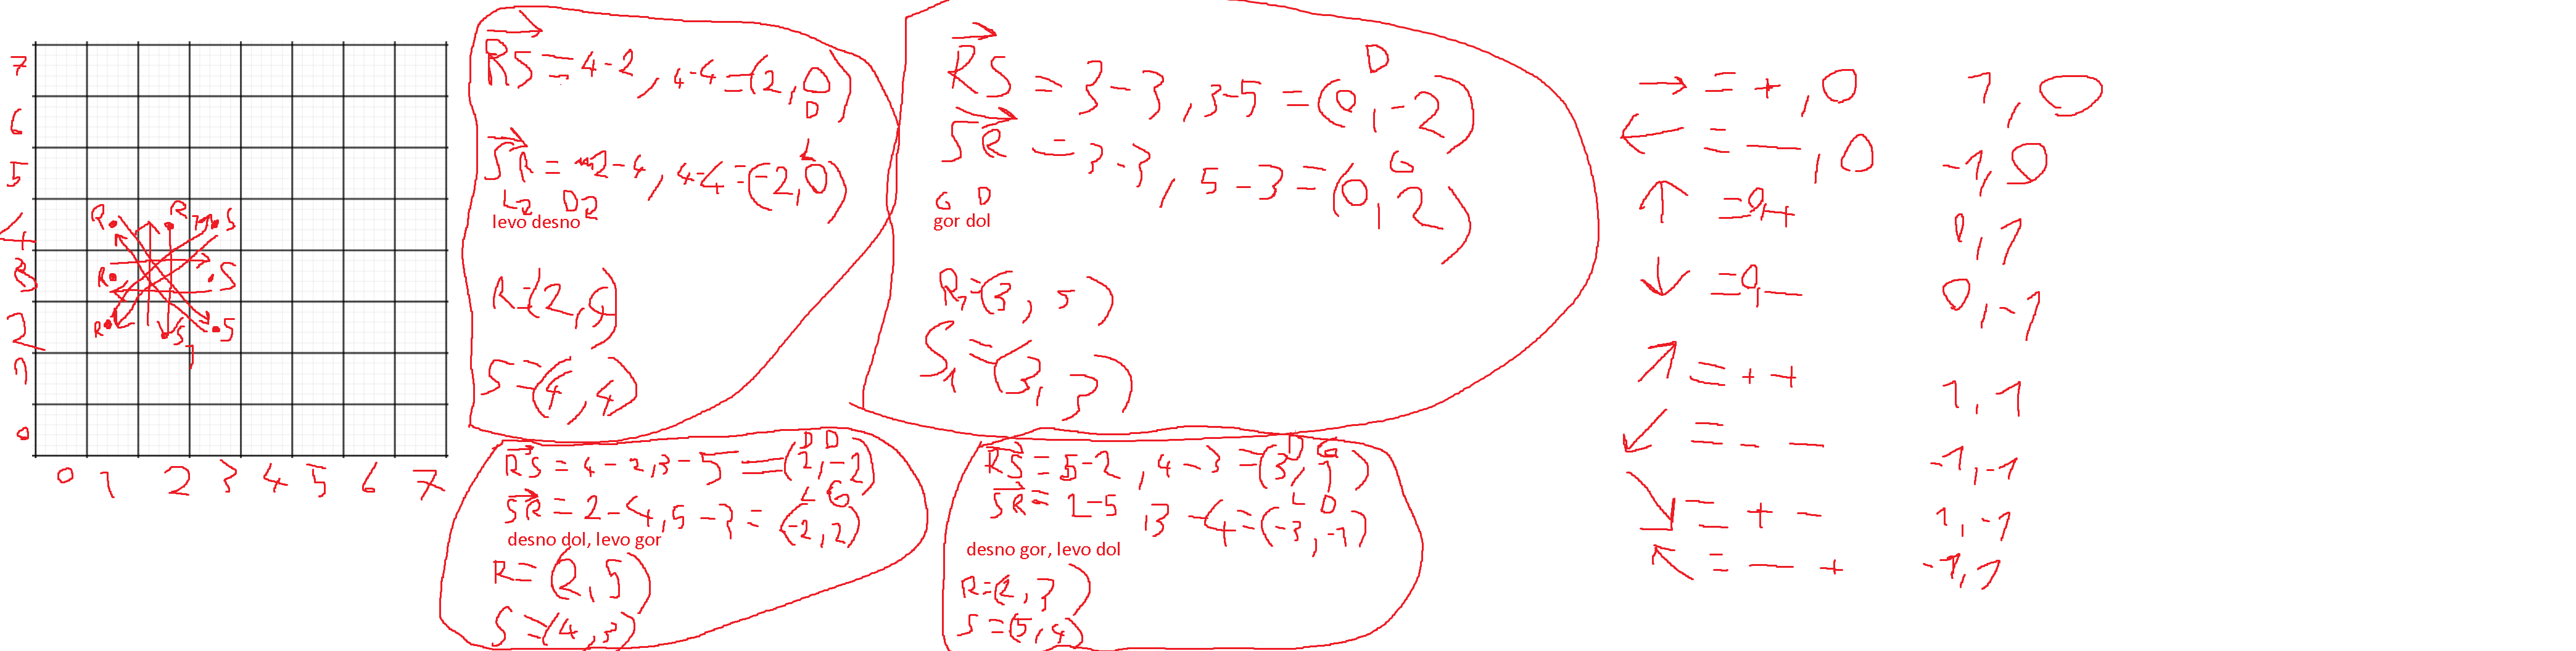 7
6
5
4
3
2
1
0
0 1 2 3 4 5 6 7
R R1 S
R S
R S1 S
RS = 4-2, 4-4 = (2, 0)
D
L
SR = 2-4, 4-4 = (-2, 0)
L2 D2
levo desno
S = (4, 4)
D
RS = 3-3, 3-5 = (0, -2)
G
SR = 3-3, 5-3 = (0, 2)
G D
gor dol
R1 = (3, 5)
S1 = (3, 3)
D D
RS = 4-2, 3-5 = (2, -2)
L G
SR = 2-4, 5-3 = (-2, 2)
desno dol, levo gor
R = (2, 5)
S = (4, 3)
D G
RS = 5-2, 4-3 = (3, 1)
L D
SR = 2-5, 3-4 = (-3, -1)
desno gor, levo dol
R = (2, 3)
S = (5, 4)
→ = +, 0 1, 0
← = -, 0 -1, 0
↑ = 0, + 0, 1
↓ = 0, - 0, -1
↗ = + + 1, 1
↙ = - - -1, -1
↘ = + - 1, -1
↖ = - + -1, 1